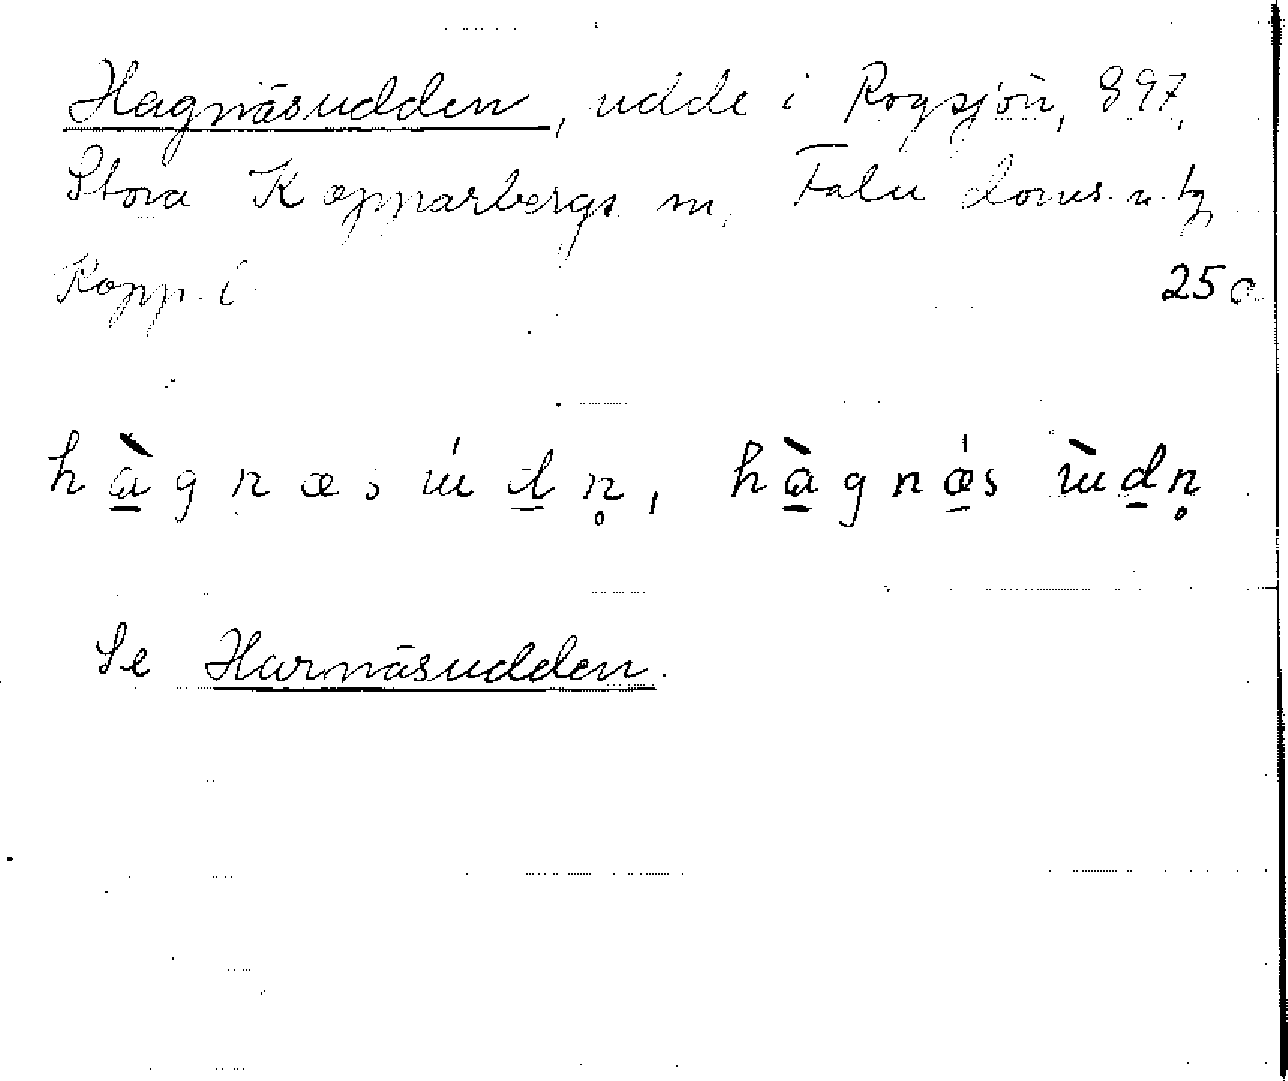 Hagnäsudden, udde i Rogsjön, 897,
Stora Kopparbergs sn, Falu doms. n. tg
Kopp. l 25 a
hàgnæsúdṇ, hàgnǽs ùdṇ
Se Harnäsudden.